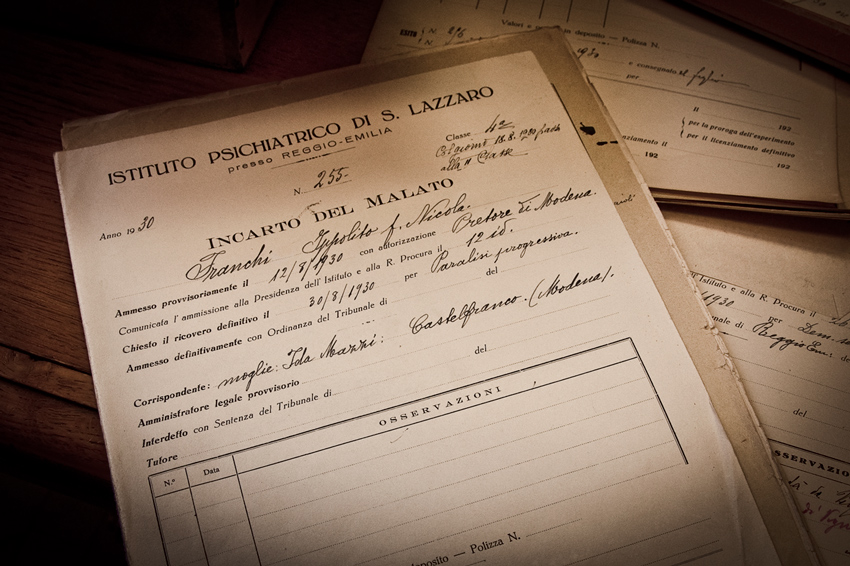 ISTITUTO PSICHIATRICO DI S. LAZZARO
presso REGGIO-EMILIA
Classe 42
18.8.1930
alla II Classe
N. 255
Anno 1930
INCARTO DEL MALATO
Franchi Ippolito f. Nicola.
Ammesso provvisoriamente il 12/8/1930 con autorizzazione Pretore di Modena.
Comunicata l'ammissione alla Presidenza dell'Istituto e alla R. Procura il 12 id.
Chiesto il ricovero definitivo il 30/8/1930 per Paralisi progressiva.
Ammesso definitivamente con Ordinanza del Tribunale di del
Corrispondente: moglie: Ida Mazzi: Castelfranco. (Modena).
Amministratore legale provvisorio
Interdetto con Sentenza del Tribunale di del
Tutore
OSSERVAZIONI
N.º Data
deposito — Polizza N.
Valori e in deposito — Polizza N.
ESITO N.
N.
1930 e consegnato
per
Il
per la proroga dell'esperimento 192
per il licenziamento definitivo
192
192
Istituto e alla R. Procura il
1930 per
Reggio Em:
del
OSSERVAZIO